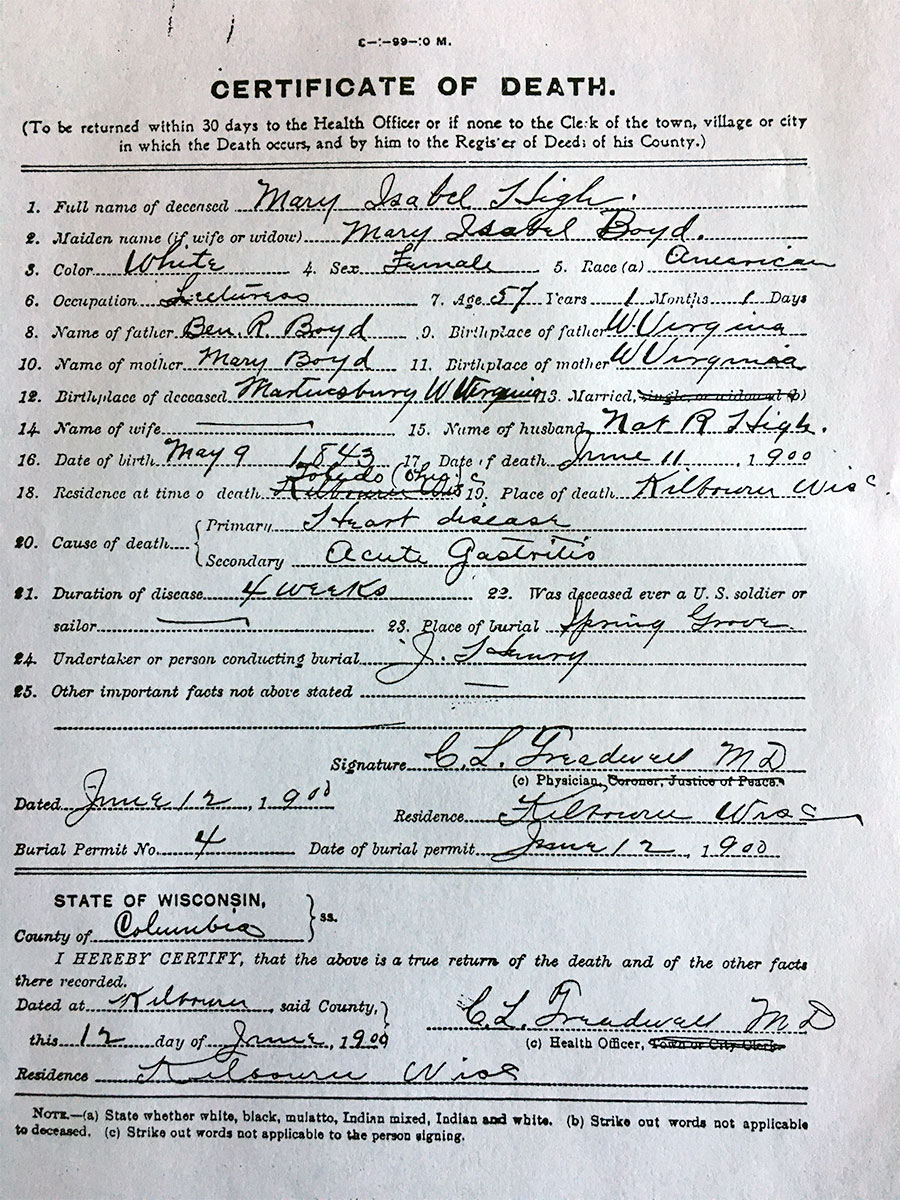 CERTIFICATE OF DEATH.
(To be returned within 30 days to the Health Officer or if none to the Clerk of the town, village or city
in which the Death occurs, and by him to the Register of Deeds of his County.)
1. Full name of deceased Mary Isabel High.
2. Maiden name (if wife or widow) Mary Isabel Boyd.
3. Color White 4. Sex Female 5. Race (a) American
6. Occupation Lecturess 7. Age 57 Years 1 Months 1 Days
8. Name of father Ben. R Boyd 9. Birthplace of father W Virginia
10. Name of mother Mary Boyd 11. Birthplace of mother W Virginia
12. Birthplace of deceased Martinsburg W Virginia 13. Married, single or widowed (b)
14. Name of wife 15. Name of husband Nat R High.
16. Date of birth May 9 1843 17. Date of death June 11, 1900
Toledo (Ohio)
18. Residence at time o death Kilbourn Wis 19. Place of death Kilbourn Wisc
20. Cause of death { Primary Heart disease
Secondary Acute Gastritis
21. Duration of disease 4 weeks 22. Was deceased ever a U. S. soldier or
sailor 23. Place of burial Spring Grove
24. Undertaker or person conducting burial J.
25. Other important facts not above stated
Signature C. L. Treadwell M D
(c) Physician, Coroner, Justice of Peace.
Dated June 12, 1900
Residence Kilbourn Wisc
Burial Permit No. 4 Date of burial permit June 12, 1900
STATE OF WISCONSIN,
County of Columbia } ss.
I HEREBY CERTIFY, that the above is a true return of the death and of the other facts
there recorded.
Dated at Kilbourn, said County,
this 12 day of June, 1900
C. L. Treadwell M D
(c) Health Officer, Town or City Clerk.
Residence Kilbourn Wisc
NOTE.—(a) State whether white, black, mulatto, Indian mixed, Indian and white. (b) Strike out words not applicable
to deceased. (c) Strike out words not applicable to the person signing.